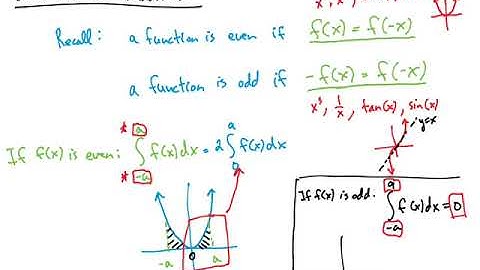 Recall: a function is even if f(x) = f(-x)
a function is odd if -f(x) = f(-x)
x³, 1/x, tan(x), sin(x)
y=x
If f(x) is even: * ∫_{-a}^{a} f(x)dx = 2∫_{0}^{a} f(x)dx
*
If f(x) is odd: ∫_{-a}^{a} f(x)dx = 0
-a 0 a